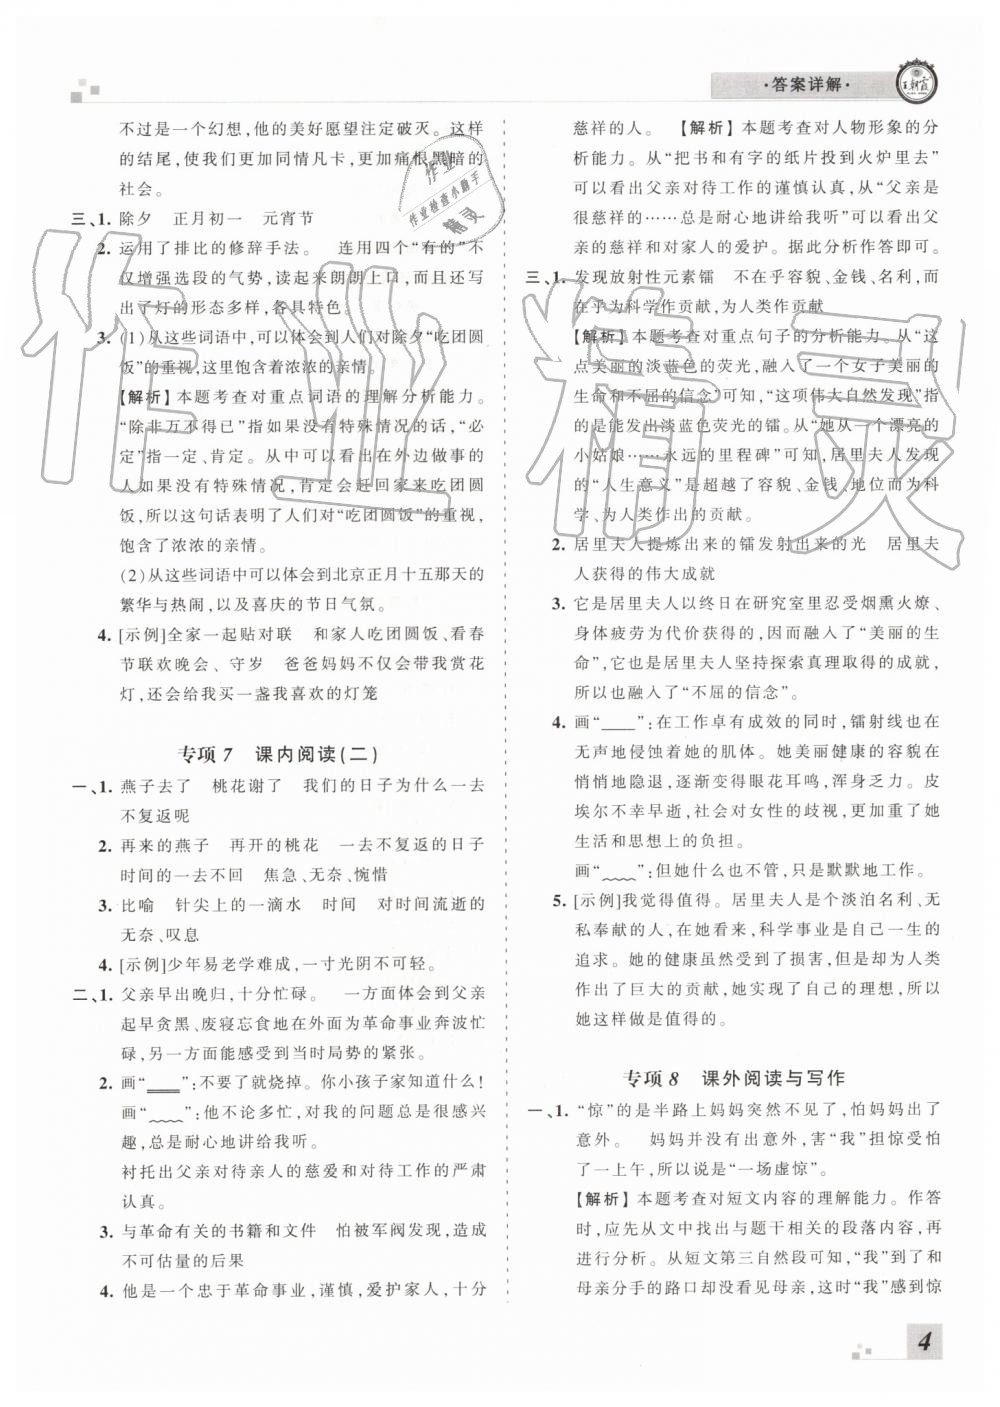 ·答案详解·
王朝霞
不过是一个幻想,他的美好愿望注定破灭。这样
的结尾,使我们更加同情凡卡,更加痛恨黑暗的
社会。
三、1. 除夕 正月初一 元宵节
2. 运用了排比的修辞手法。 连用四个“有的”不
仅增强选段的气势,读起来朗朗上口,而且还写
出了灯的形态多样,各具特色。
3. (1)从这些词语中,可以体会到人们对除夕“吃团圆
饭”的重视,这里饱含着浓浓的亲情。
【解析】本题考查对重点词语的理解分析能力。
“除非万不得已”指如果没有特殊情况的话,“必
定”指一定、肯定。从中可以看出在外边做事的
人如果没有特殊情况,肯定会赶回家来吃团圆
饭,所以这句话表明了人们对“吃团圆饭”的重视,
饱含了浓浓的亲情。
(2)从这些词语中可以体会到北京正月十五那天的
繁华与热闹,以及喜庆的节日气氛。
4. [示例]全家一起贴对联 和家人吃团圆饭、看春
节联欢晚会、守岁 爸爸妈妈不仅会带我赏花
灯,还会给我买一盏我喜欢的灯笼
专项7 课内阅读(二)
一、1. 燕子去了 桃花谢了 我们的日子为什么一去
不复返呢
2. 再来的燕子 再开的桃花 一去不复返的日子
时间的一去不回 焦急、无奈、惋惜
3. 比喻 针尖上的一滴水 时间 对时间流逝的
无奈、叹息
4. [示例]少年易老学难成,一寸光阴不可轻。
二、1. 父亲早出晚归,十分忙碌。 一方面体会到父亲
起早贪黑、废寝忘食地在外面为革命事业奔波忙
碌,另一方面能感受到当时局势的紧张。
2. 画“____”:不要了就烧掉。你小孩子家知道什么!
画“﹏﹏”:他不论多忙,对我的问题总是很感兴
趣,总是耐心地讲给我听。
衬托出父亲对待亲人的慈爱和对待工作的严肃
认真。
3. 与革命有关的书籍和文件 怕被军阀发现,造成
不可估量的后果
4. 他是一个忠于革命事业,谨慎,爱护家人,十分
慈祥的人。 【解析】本题考查对人物形象的分
析能力。从“把书和有字的纸片投到火炉里去”
可以看出父亲对待工作的谨慎认真,从“父亲是
很慈祥的……总是耐心地讲给我听”可以看出父
亲的慈祥和对家人的爱护。据此分析作答即可。
三、1. 发现放射性元素镭 不在乎容貌、金钱、名利,而
在乎为科学作贡献,为人类作贡献
【解析】本题考查对重点句子的分析能力。从“这
点美丽的淡蓝色的荧光,融入了一个女子美丽的
生命和不屈的信念”可知,“这项伟大自然发现”指
的是能发出淡蓝色荧光的镭。从“她从一个漂亮的
小姑娘……永远的里程碑”可知,居里夫人发现
的“人生意义”是超越了容貌、金钱、地位而为科
学、为人类作出的贡献。
2. 居里夫人提炼出来的镭发射出来的光 居里夫
人获得的伟大成就
3. 它是居里夫人以终日在研究室里忍受烟熏火燎、
身体疲劳为代价获得的,因而融入了“美丽的生
命”,它也是居里夫人坚持探索真理取得的成就,
所以也融入了“不屈的信念”。
4. 画“____”:在工作卓有成效的同时,镭射线也在
无声地侵蚀着她的肌体。她美丽健康的容貌在
悄悄地隐退,逐渐变得眼花耳鸣,浑身乏力。皮
埃尔不幸早逝,社会对女性的歧视,更加重了她
生活和思想上的负担。
画“﹏﹏”:但她什么也不管,只是默默地工作。
5. [示例]我觉得值得。居里夫人是个淡泊名利、无
私奉献的人,在她看来,科学事业是高于自己一生的
追求。她的健康虽然受到了损害,但是却为人类
作出了巨大的贡献,她实现了自己的理想,所以
她这样做是值得的。
专项8 课外阅读与写作
一、1. “惊”的是半路上妈妈突然不见了,怕妈妈出了
意外。 妈妈并没有出意外,害“我”担惊受怕
了一上午,所以说是“一场虚惊”。
【解析】本题考查对短文内容的理解能力。作答
时,应先从文中找出与题干相关的段落内容,再
进行分析。从短文第三自然段可知,“我”到了和
母亲分手的路口却没看见母亲,这时“我”感到惊
4
作业精灵
作业
作业检查小助手
精灵